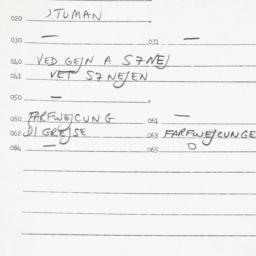 020 STUMAN
030 — 031 —
040 VED GEJN A SZNEJ
041 VET SZNEJEN
050 —
060 FARFWEJCUNG 061 —
062 DIGREJSE 063 FARFWEJCUNGE
064 — 065 O